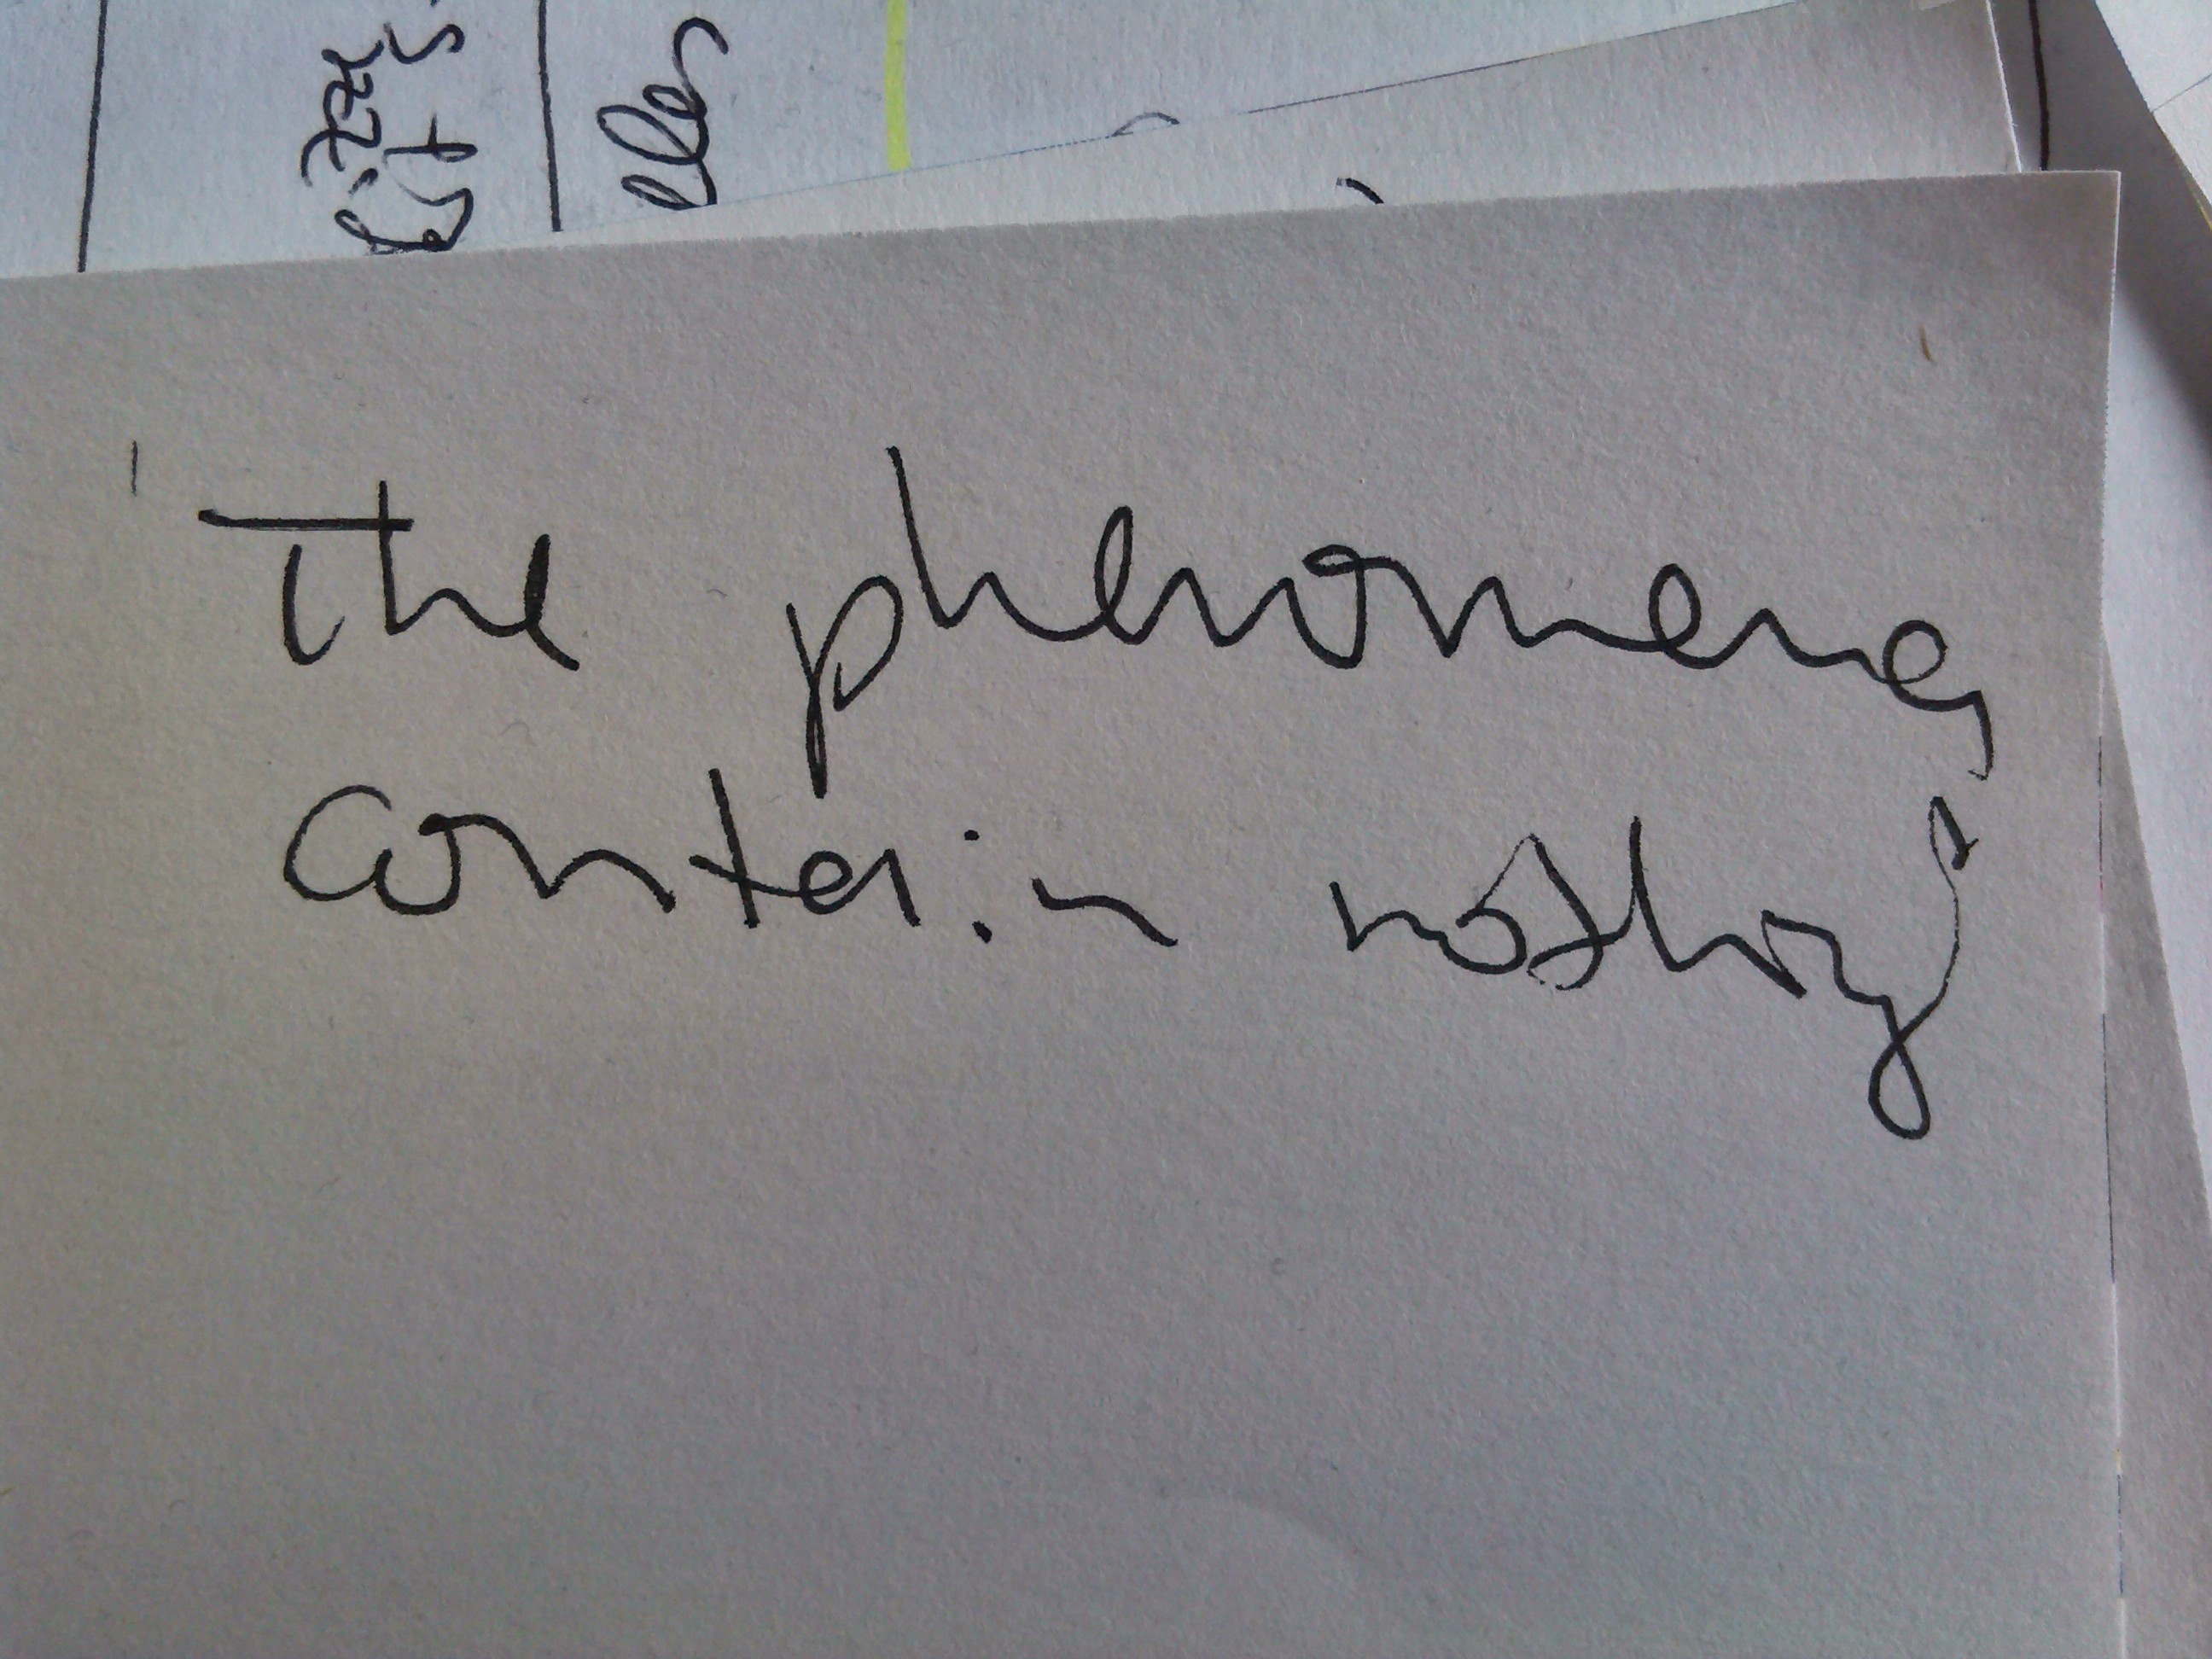 'The phenomena
contain nothing